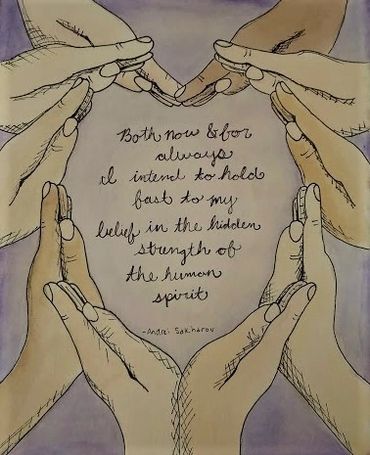 Both now & for
always
I intend to hold
fast to my
belief in the hidden
strength of
the human
spirit
-Andrei Sakharov